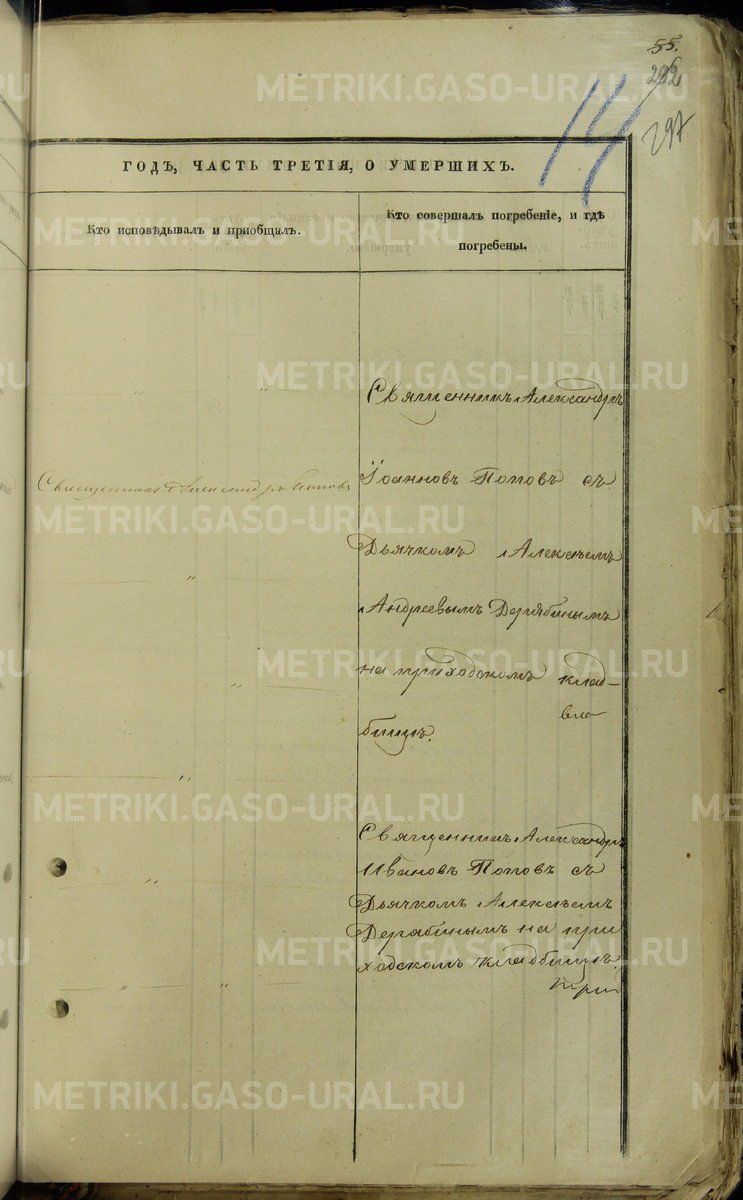 55.
292
297
14
ГОДЪ, ЧАСТЬ ТРЕТІЯ, О УМЕРШИХЪ.
Кто исповѣдывалъ и пріобщилъ.
Кто совершалъ погребеніе, и гдѣ
погребены.
Священникъ Александръ Поповъ
Священникъ Александръ
Іоанновъ Поповъ съ
Дьячкомъ Алексѣемъ
Андреевымъ Дерябинымъ
на приходскомъ клад-
бищѣ.
Священникъ Александръ
Ивановъ Поповъ съ
Дьячкомъ Алексѣемъ
Дерябинымъ на при
ходскомъ кладбищѣ.
METRIKI.GASO-URAL.RU
METRIKI.GASO-URAL.RU
METRIKI.GASO-URAL.RU
METRIKI.GASO-URAL.RU
METRIKI.GASO-URAL.RU
METRIKI.GASO-URAL.RU
METRIKI.GASO-URAL.RU
METRIKI.GASO-URAL.RU